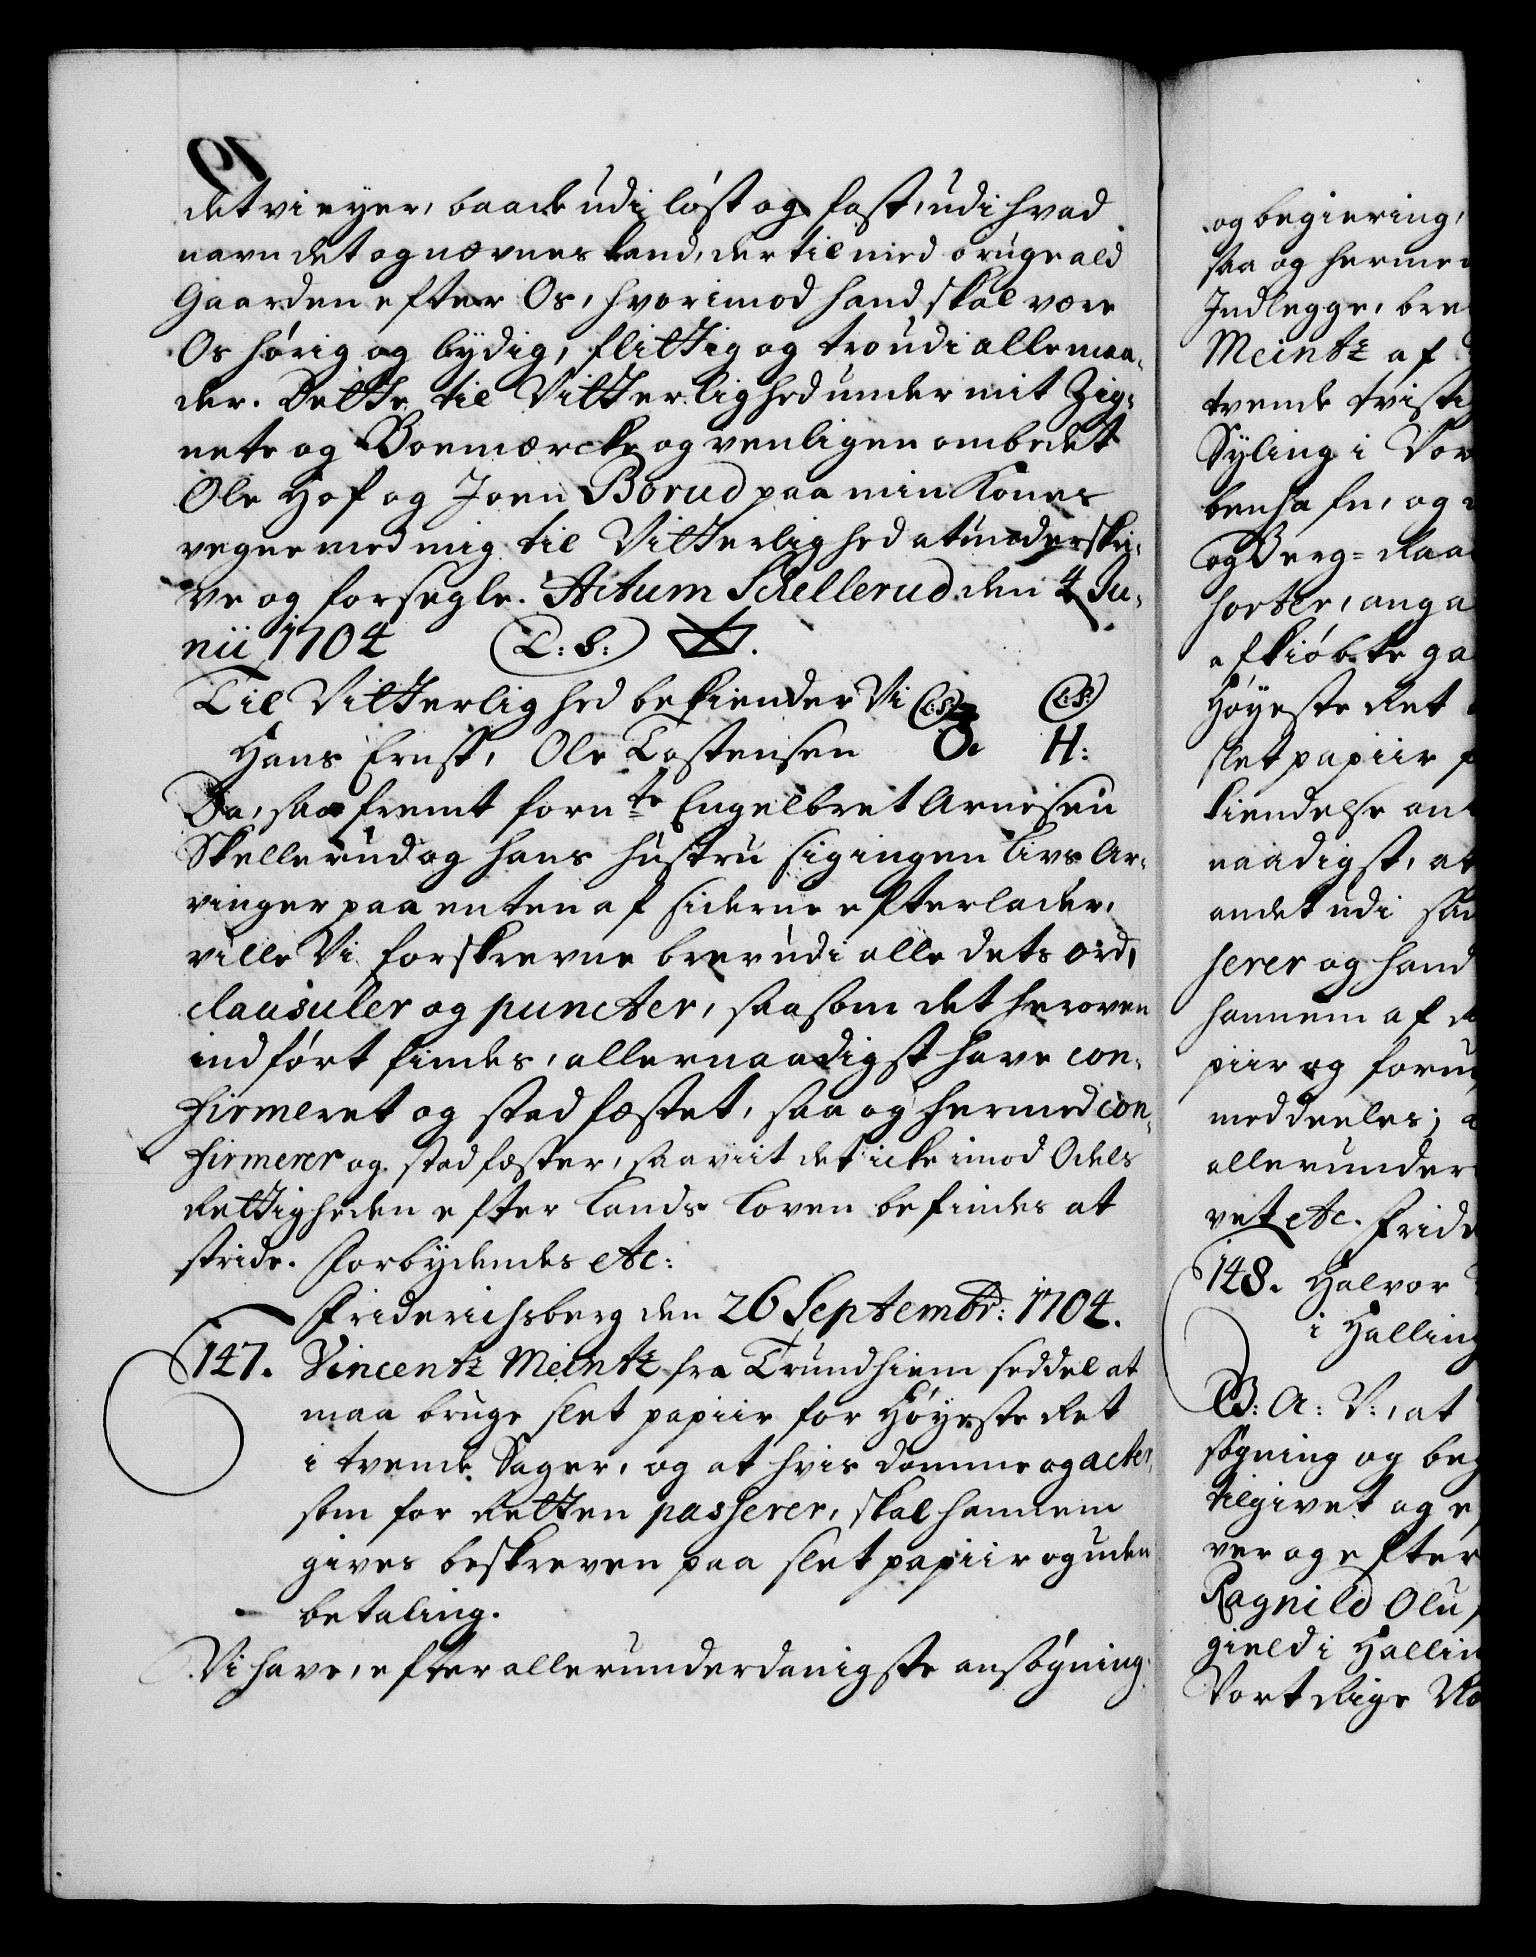 det vi eyer, baade udi løst og fast, udi hvad
navn det og nævnes kand, der til med bruge ald
Gaarden efter Os, hvorimod hand skal være
Os hørig og lydig, flittig og tro udi alle maa-
der. Dette til Vitterlighed under mit Zig-
nete og Boemærcke og venligen ombedet
Ole Hof og Joen Borud paa min Kones
vegne med mig til Vitterlighed at underskri-
ve og forsegle. Actum Schellerud den 4 Ju-
nii 1704 (L: S:)
Til Vitterlighed bekiender Vi (L:S:) (L:S:)
Hans Ernst, Ole Tostensen O. H:
Da, saafremt forn te Engelbret Arnesen
Skellerud og hans hustru sig ingen Livs Ar-
vinger paa enten af siderne efterlader,
ville Vi forskrevne brev udi alle dets ord,
clausuler og puncter, saasom det heroven
indført findes, allernaadigst have con-
firmeret og stadfæstet, saa og hermed con-
firmerer og stadfæster, saaviit det icke imod Odels
Rettigheden efter Lands Loven befindes at
stride. Forbydendes etc:
Friderichsberg den 26 Septembr: 1704.
147. Vincentz Meintz fra Trundhiem seddel at
maa bruge slet papiir for Høyeste Ret
i tvende Sager, og at hvis domme og acter,
som for Retten passerer, skal hannem
gives beskreven paa slet papiir og uden
betaling.
Vi have, efter allerunderdanigste ansøgning
og begiering,
saa og hermed
Indlegge, bre
Meintz af
tvende tvisti
Syling i Vor
benhafn, og
og Berg-Raa
horter, anga
afkiøbte ga
Høyeste Ret
slet papiir
kiendelse an
naadigst, at
andet udi saa
serer og hand
hannem af
piir og foru
meddeeles;
allerunder
vet etc. Frid
148. Halvor
i Halling
G: A: V:, at
søgning og beg
tilgivet og e
ver og efter
Ragnild Olu
gield i Hallin
Vort Rige No